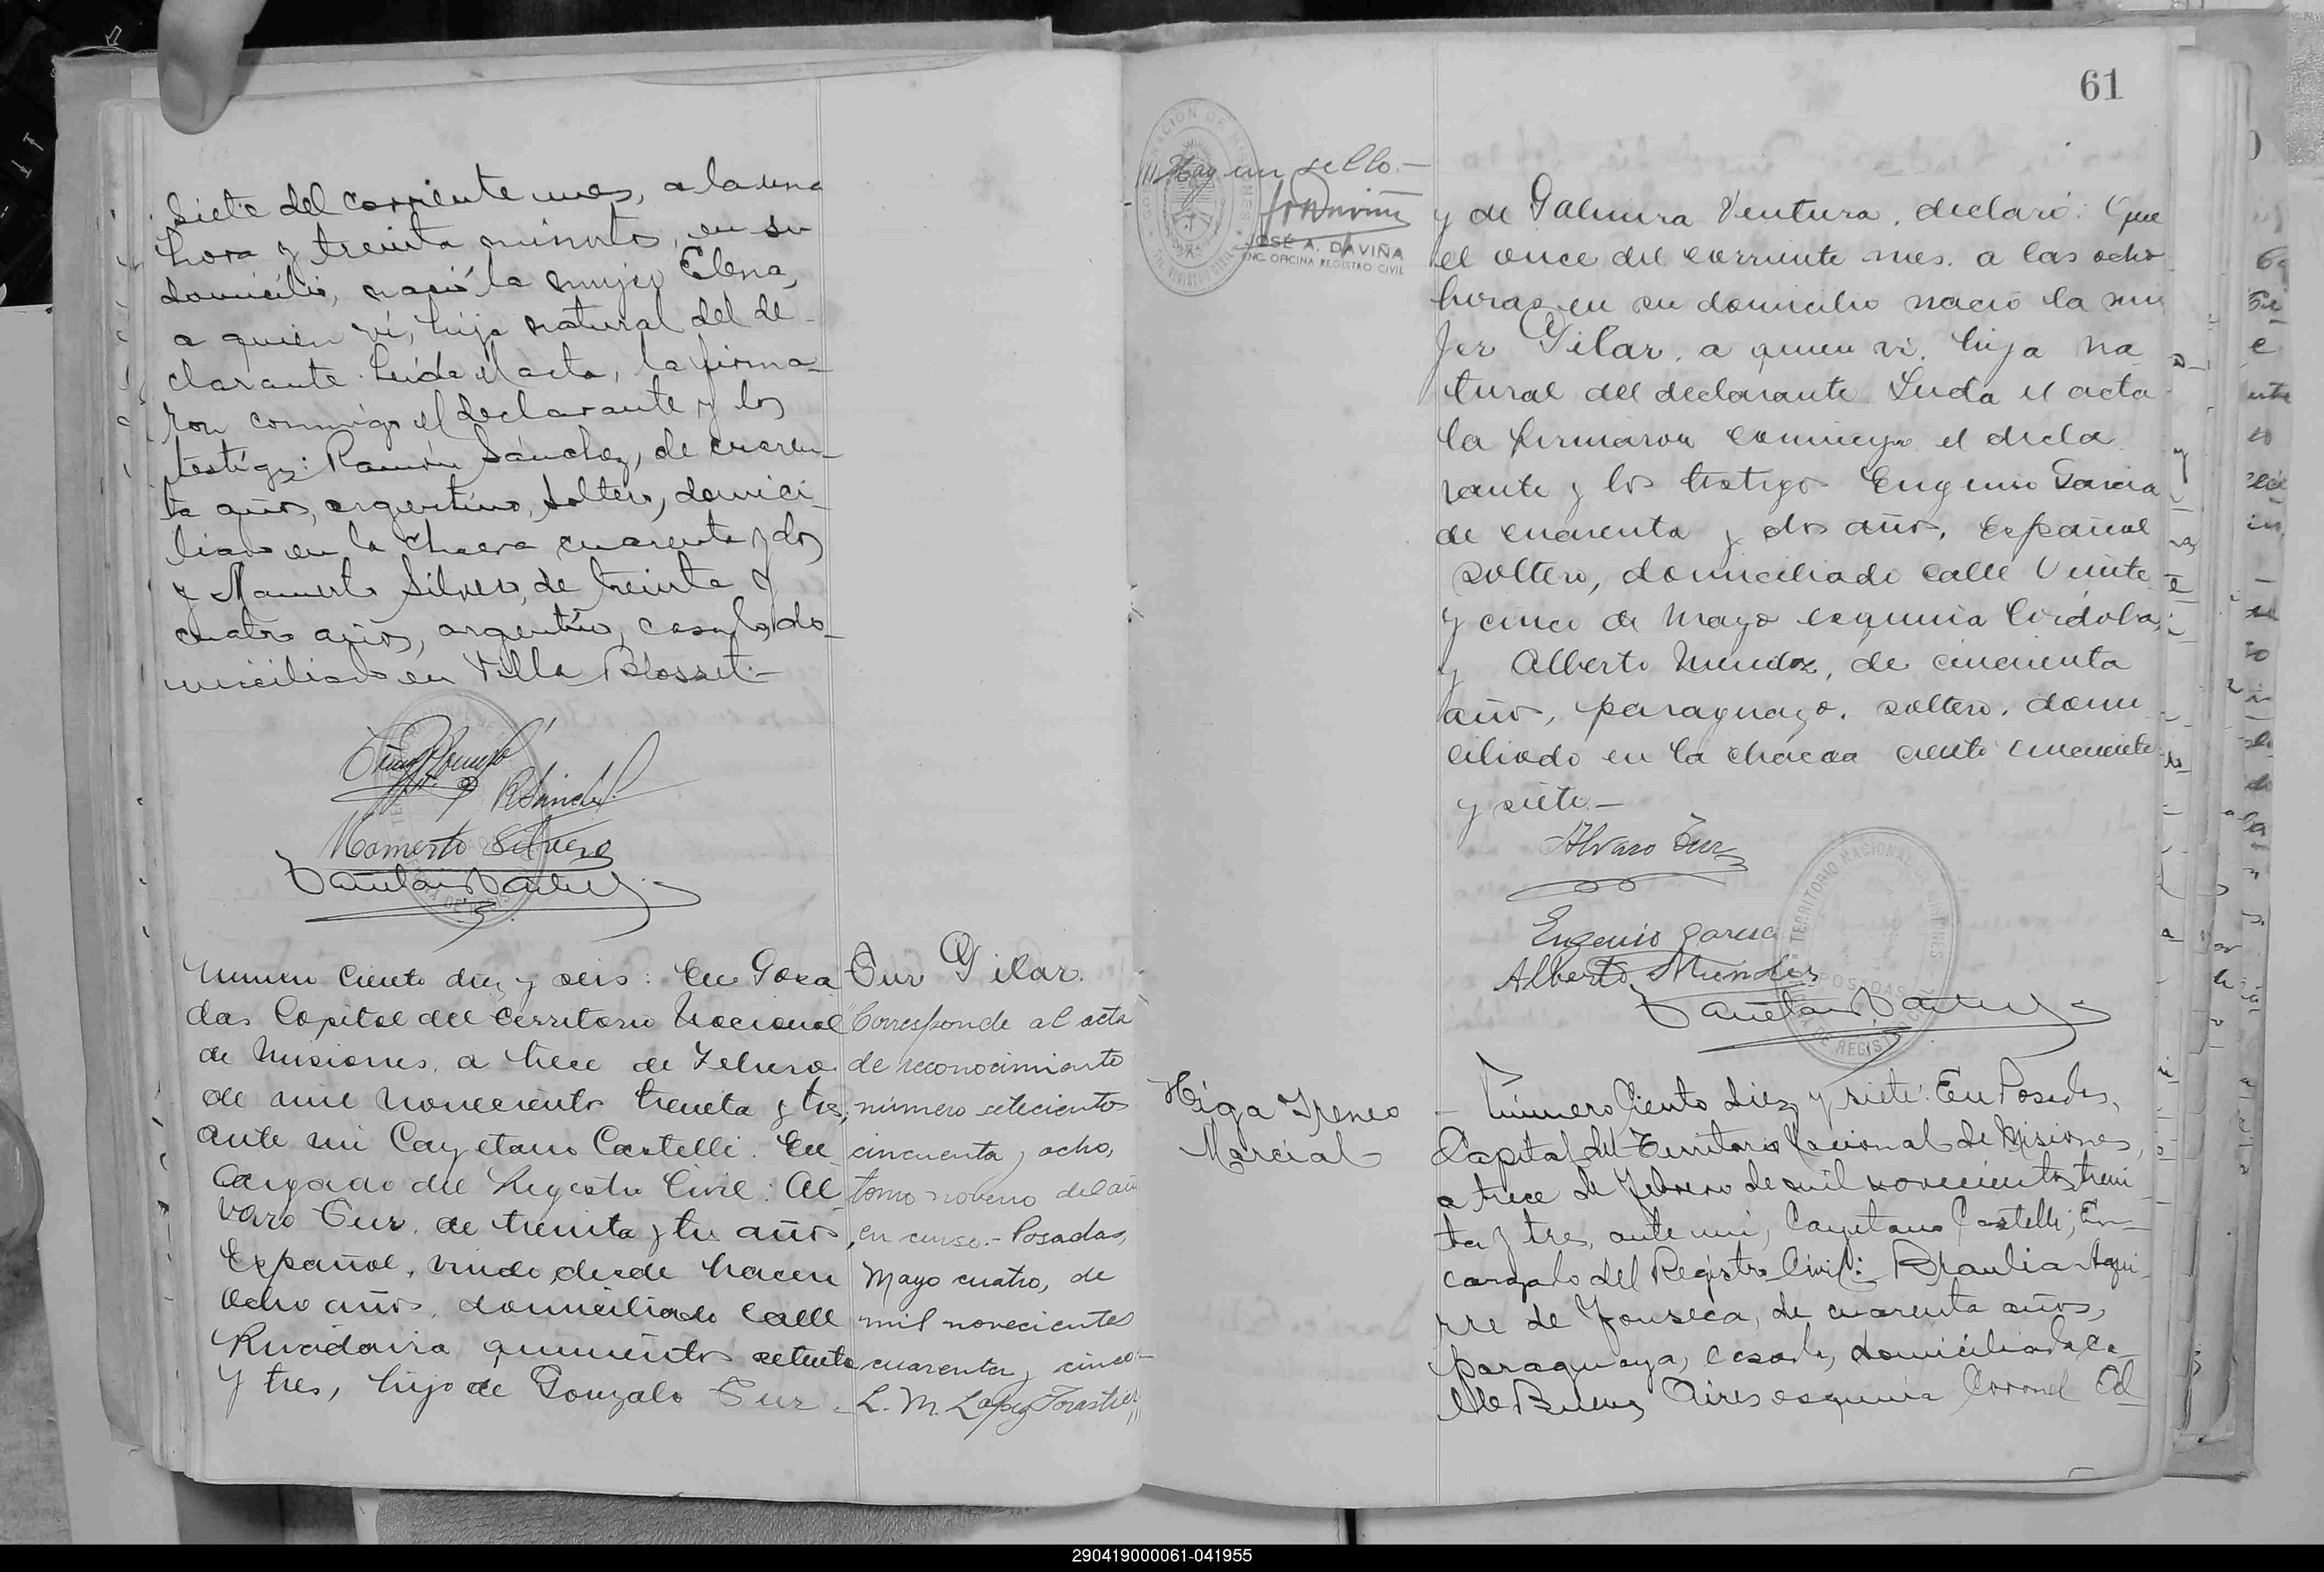 siete del corriente mes, a la una
hora y treinta minutos, en su
domicilio, nació la mujer Elena,
a quien ví, hija natural del de-
clarante. Leída el acta, la firma-
ron conmigo el declarante y los
testigos: Ramón Sánchez, de cuaren-
ta años, argentino, soltero, domici-
liado en la chacra cuarenta y dos
y Mamerto Silvero, de treinta y
cuatro años, argentino, casado, do-
miciliado en Villa Blosset.-
R Sánchez
Mamerto Silvero
Numero Ciento diez y seis: En Posa
das Capital del Territorio Nacional
de Misiones, a trece de Febrero
de mil novecientos treinta y tres,
ante mi Cayetano Castelli. En
cargado del Registro Civil: Al
varo Tur, de treinta y tres años,
Español, viudo desde hacen
ocho años, domiciliado calle
Rivadavia quinientos setenta
y tres, hijo de Gonzalo Tur
Tur Pilar.
"Corresponde al acta
de reconocimiento
número setecientos
cincuenta y ocho,
tomo noveno del año
en curso.- Posadas,
Mayo cuatro, de
mil novecientos
cuarenta y cinco-
L. M. Lopez Forastier"
61
Hay un sello.-
JOSÉ A. DAVIÑA
ENC. OFICINA REGISTRO CIVIL
y de Palmira Ventura, declaró: Que
el once del corriente mes, a las ocho
horas en su domicilio nació la mu
jer Pilar, a quien vi, hija na
tural del declarante. Leida el acta
la firmaron conmigo el decla
rante y los testigos Eugenio Garcia
de cuarenta y dos años, Español
soltero, domiciliado calle Veinte
y cinco de Mayo esquina Córdoba,
y Alberto Mendez, de cincuenta
años, paraguayo, soltero, domi
ciliado en la chacra ciento cincuenta
y siete.-
Alvaro Tur
Eugenio Garcia
Alberto Mendez
TERRITORIO NACIONAL DE MISIONES
POSADAS
Higa Ireneo
Marcial
- Número Ciento diez y siete: En Posadas,
Capital del Territorio Nacional de Misiones,
a trece de Febrero de mil novecientos trein
ta y tres, ante mi, Cayetano Castelli, En-
cargado del Registro Civil: Braulia Agui-
rre de Fonseca, de cuarenta años,
paraguaya, casada, domiciliada ca-
lle Buenos Aires esquina Coronel Al-
290419000061-041955